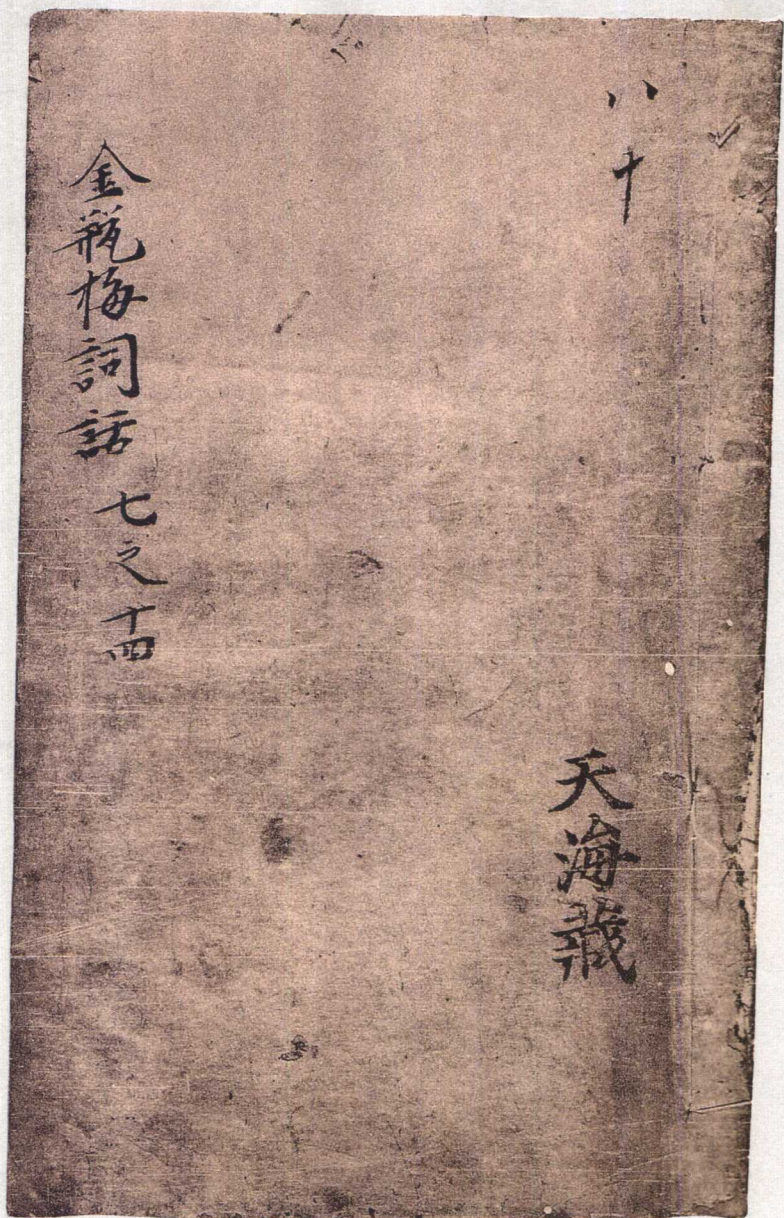 八十
天海蔵
金瓶梅詞話 七之十四